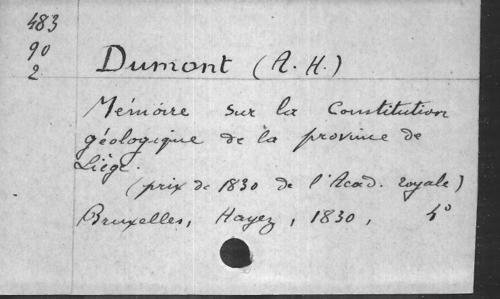 483
90
2
Dumont (A. H.)
Mémoire sur la Constitution
géologique de la province de
Liège.
(prix de 1830 de l'Acad. royale)
Bruxelles, Hayez, 1830, 4°